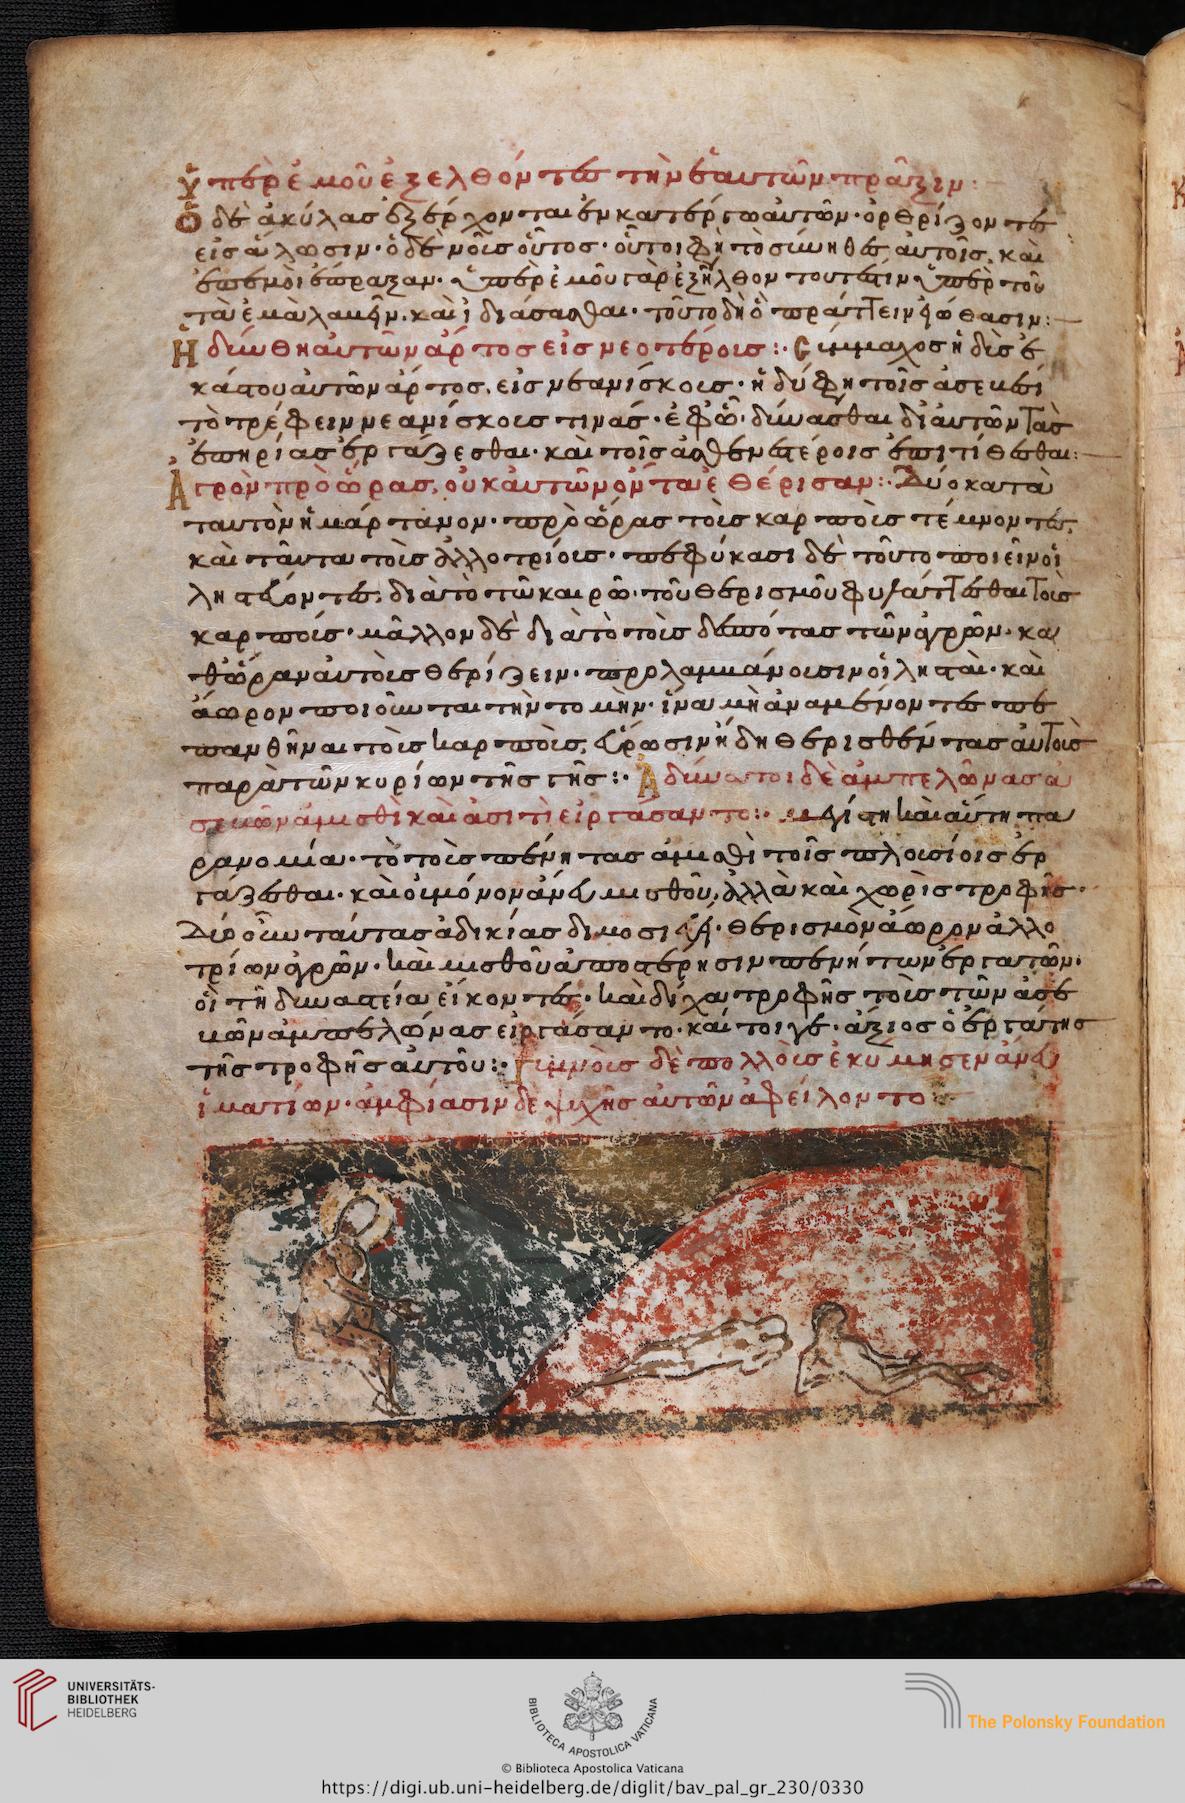 ὑπὲρ ἐμοῦ ἐξελθόντες τὴν ἑαυτῶν πρᾶξιν:
Ὁ δὲ ἀκύλας ἐξέρχονται ἐν κατέργω αὐτῶν· ὀρθρίζοντες
εἰς ἅλωσιν· ὁ δὲ νοῦς οὗτος· οὗτοι φη τὸ σύνηθες αὐτοῖς, καὶ
ἐπ ἐμοὶ ἔπραξαν· ὑπὲρ ἐμοῦ γὰρ ἐξῆλθον τουτέστιν ὑπὲρ τοῦ
τὰ ἐμὰ λαβεῖν· καὶ ἰδιάσασθαι· τοῦτο δὴ ὃ πράττειν εἰώθασιν:
Ἡδύνθη αὐτῶν ἄρτος εἰς νεοτέροις: Σύμμαχος ἡδὺς ἐ
κάστου αὐτῶν ἄρτος, εἰς νεανίσκους· ἡδύ φη τοῖς ἀσεβέσι
τὸ τρέφειν νεανίσκους τινάς· ἐφῶ δύνασθαι δι αὐτῶν τὰς
ἐπηρίας ἐργάζεσθαι· καὶ τοῖς ἀσθενεστέροις ἐπιτίθεσθαι:
Ἀγρὸν πρὸ ὥρας, οὐκ αὐτῶν ὄντα ἐθέρισαν: Δύο κατὰ
ταυτὸν ἡμάρτανον· πρὸ ὥρας τοὺς καρποὺς τέμνοντες,
καὶ ταῦτα τοὺς ἀλλοτρίους· πεφύκασι δὲ τοῦτο ποιεῖν οἱ
ληστεύοντες, διὰ τὸ τῶ καιρῶ τοῦ θερισμοῦ φυλάττεσθαι τοὺς
καρπούς· μᾶλλον δὲ διὰ τὸ τοὺς δεσπότας τῶν ἀγρῶν· κα
θ ὥραν αὐτοὺς θερίζειν· προλαμβάνουσιν οἱ λησταὶ· καὶ
ἄωρον ποιοῦνται τὴν τομὴν· ἵνα μὴ ἀναμένοντες πε
πανθῆναι τοὺς καρποὺς, εὕρωσιν ἤδη θερισθέντας αὐτοὺς
παρὰ τῶν κυρίων τῆς γῆς: Ἀδύνατοι δὲ ἀμπελῶνας ἀ
σεβῶν ἀμισθὶ καὶ ἀσιτὶ εἰργάσαντο: καὶ αὕτη πα
ρανομία· τὸ τοὺς πένητας ἀμισθὶ τοῖς πλουσίοις ἐρ
γάζεσθαι· καὶ οὐ μόνον ἄνευ μισθοῦ, ἀλλὰ καὶ χωρὶς τροφῆς·
Δύο οὖν ταύτας ἀδικίας δημοσιεύει· θερισμὸν ἄωρον ἀλλο
τρίων ἀγρῶν· καὶ μισθοῦ ἀποστέρησιν πενήτων ἐργατῶν·
οἳ τῆ δυναστεία εἴκοντες· καὶ δίχα τροφῆς τοὺς τῶν ἀσε
βῶν ἀμπελῶνας εἰργάσαντο· καίτοιγε· ἄξιος ὁ ἐργάτης
τῆς τροφῆς αὐτοῦ: Γυμνοὺς δὲ πολλοὺς ἐκοίμησεν ἄνευ
ἱματίων· ἀμφίασιν δὲ ψυχῆς αὐτῶν ἀφείλοντο
UNIVERSITÄTS-
BIBLIOTHEK
HEIDELBERG
BIBLIOTECA APOSTOLICA VATICANA
The Polonsky Foundation
© Biblioteca Apostolica Vaticana
https://digi.ub.uni-heidelberg.de/diglit/bav_pal_gr_230/0330